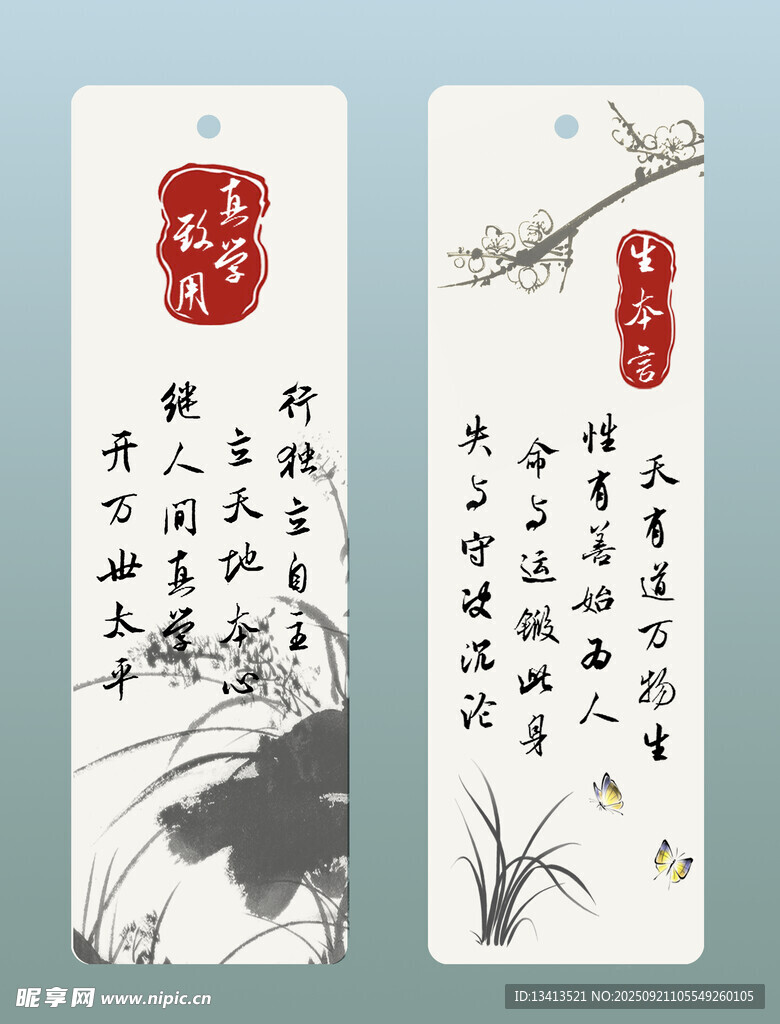 真学
致用
行独立自主
立天地本心
继人间真学
开万世太平
生本言
天有道万物生
性有善始为人
命与运锻此身
失与守决沉沦
昵享网 www.nipic.cn
ID:13413521 NO:20250921105549260105